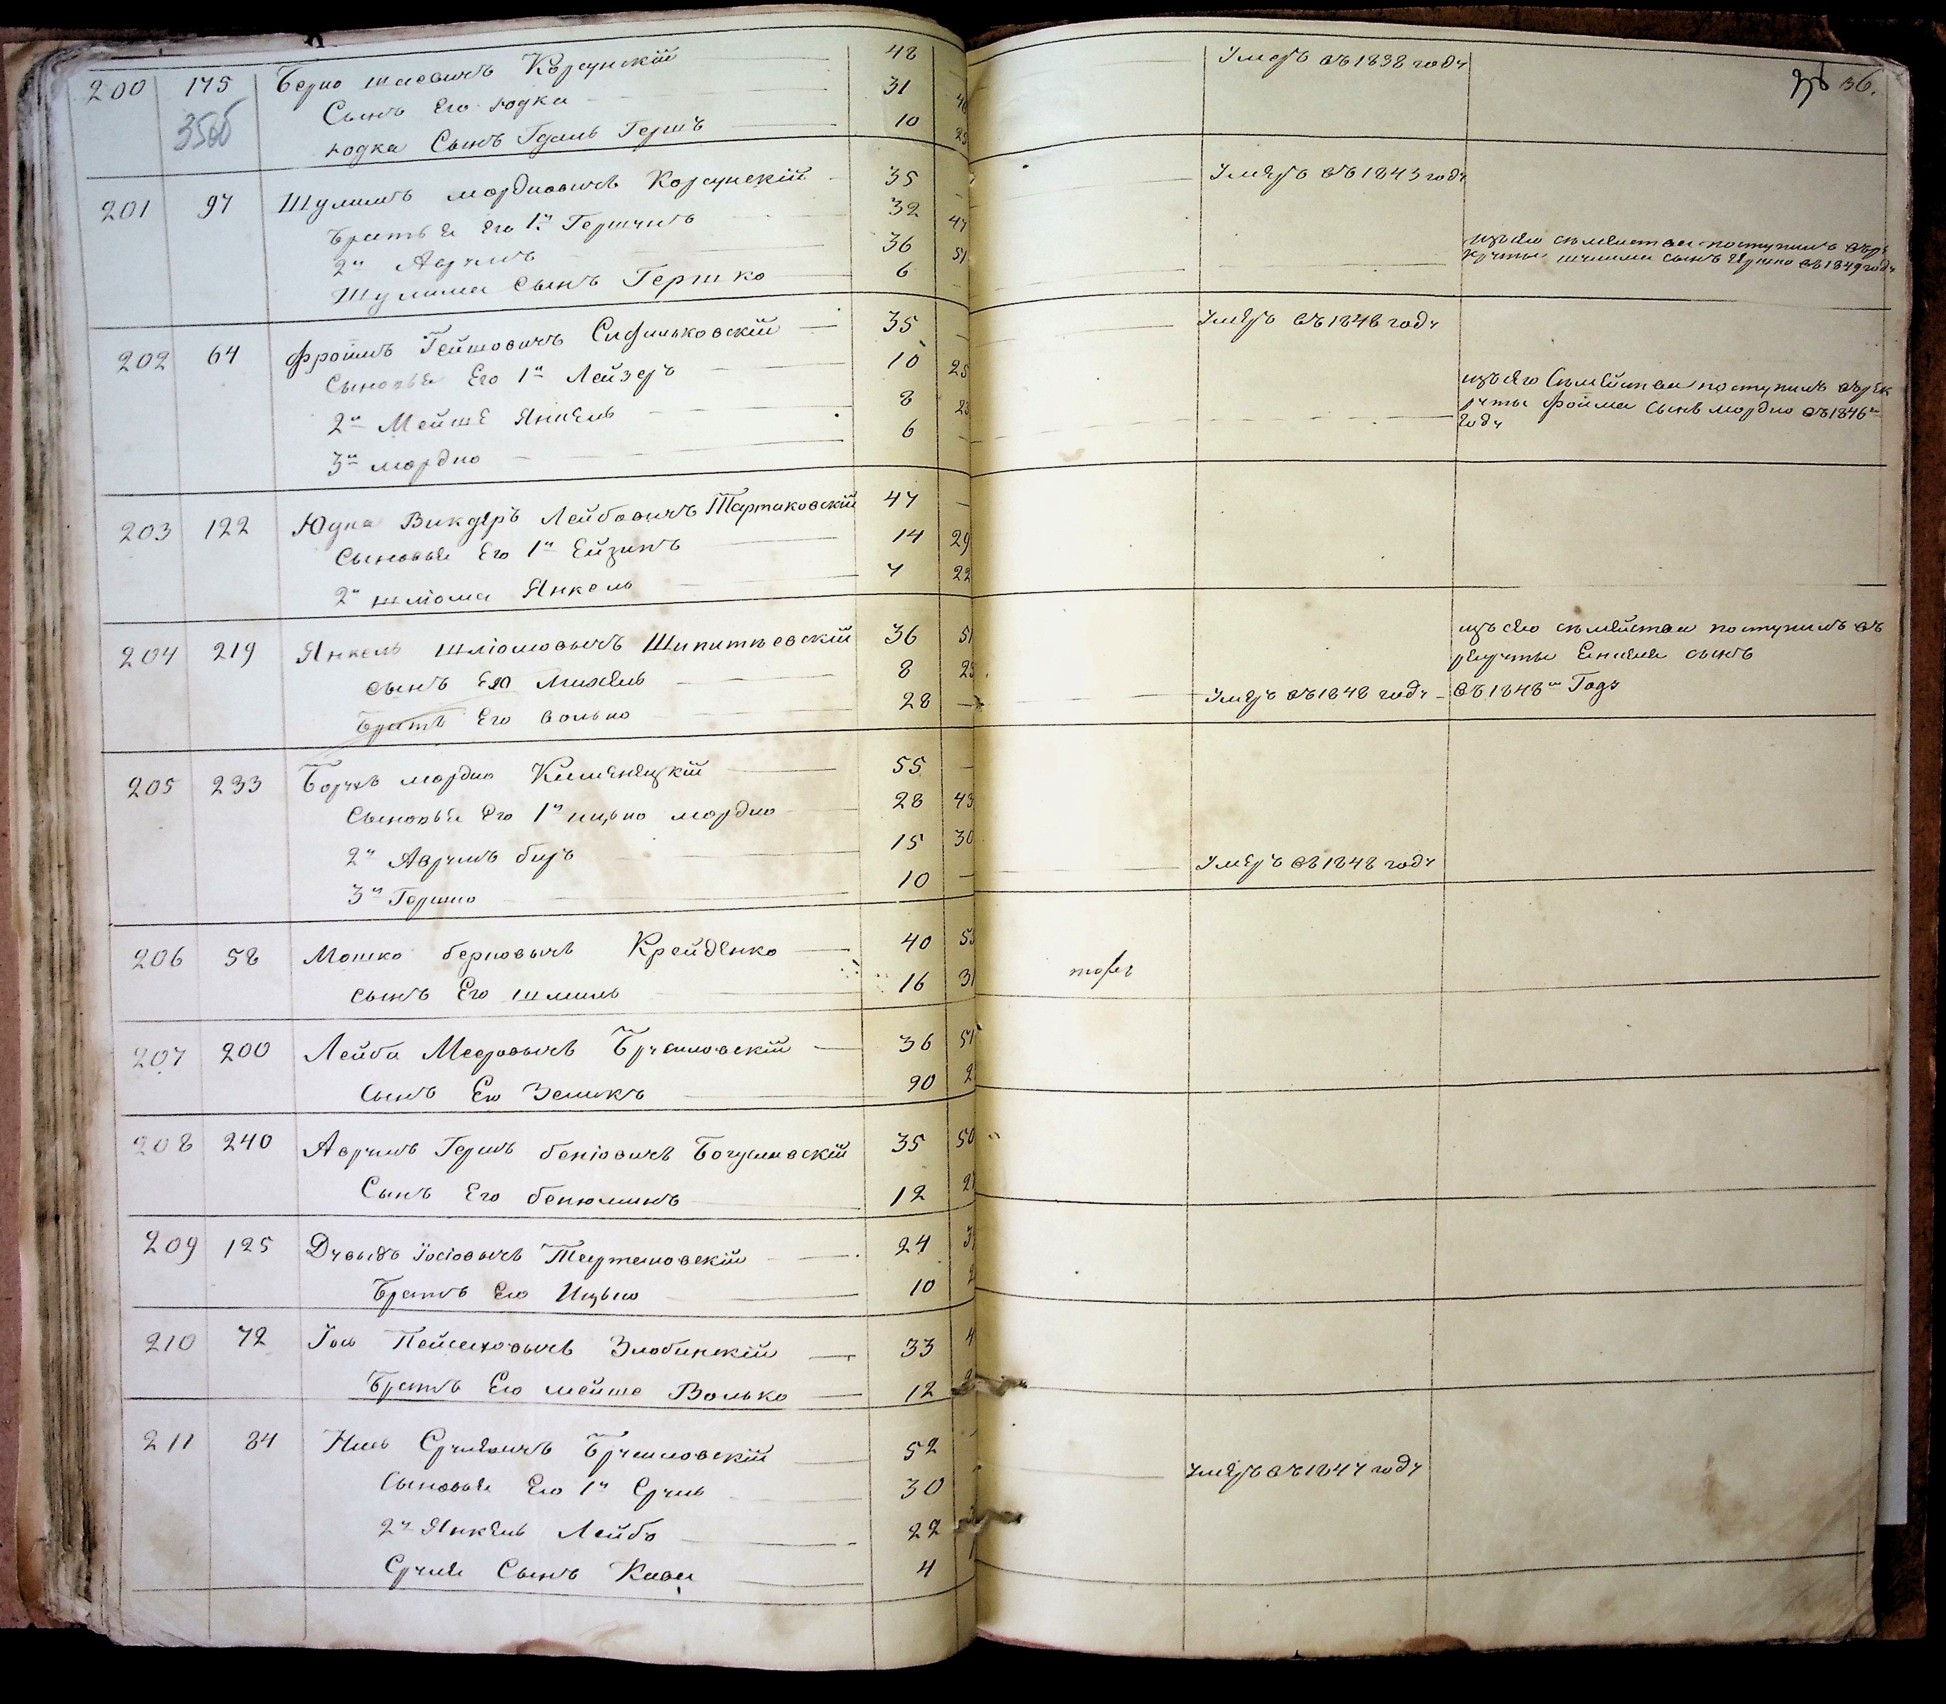 200 175 Берко Шаевичъ Корсунскій 48 умеръ въ 1838 году 36.
Сынъ Его Юдка 31
Юдка Сынъ Гдаль Гершъ 10
201 97 Шулимъ мордковичъ Корсунскій 35 умеръ въ 1843 году
Братья Его 1й Гершинъ 32 47
2й Аврумъ 36 51
Шулима Сынъ Гершко 6
изъ его семейства поступилъ въ рекруты Шлима сынъ въ 1849 году
202 64 Фроимъ Гейшовичъ 35 умеръ въ 1848 году
Сыновья Его 1й Лейзеръ 10 25
2й Мейше Янкель 8 23
3й мордко 6
изъ его Семейства поступилъ въ рек
руты Фроима сынъ мордко въ 1846м
году
203 122 Юдка Викдеръ Лейбовичъ Тартаковскій 47
Сыновья Его 1й Ейзикъ 14 29
2й шлiома Янкель 7 22
204 219 Янкель шлiомовичъ Шипитьевскій 36 51
сынъ Его Михель 8 23
Братъ Его волько 28 умеръ въ 1848 году
изъ его семейства поступилъ въ
рекруты сынъ
въ 1848м Годѣ
205 233 Борухъ мордко Каменецкій 55
Сыновья Его 1й ицько мордко 28 43
2й Аврумъ беръ 15 30
3й Гершко 10 умеръ въ 1848 году
206 58 Мошко берковичъ Крейденко 40 55
сынъ Его шмиль 16 31
207 200 Лейба Мееровичъ Бручиловскій 36 51
Сынъ Его Зеликъ 90
208 240 Аврумъ Гершъ бенiовичъ Богуславскій 35 50
Сынъ Его бенюминъ 12 27
209 125 Давыдъ Іосіовичъ Тартаковскій 24
Братъ Его Ицько 10
210 72 Іось Пейсаховичъ Злобинскій 33
Братъ Его мейше Волько 12
211 84 Срулевичъ Бручиловскій 52
Сыновья Его 1й Сруль 30 умеръ въ 1847 году
2й Янкель Лейба 22
Сруля Сынъ Кива 4